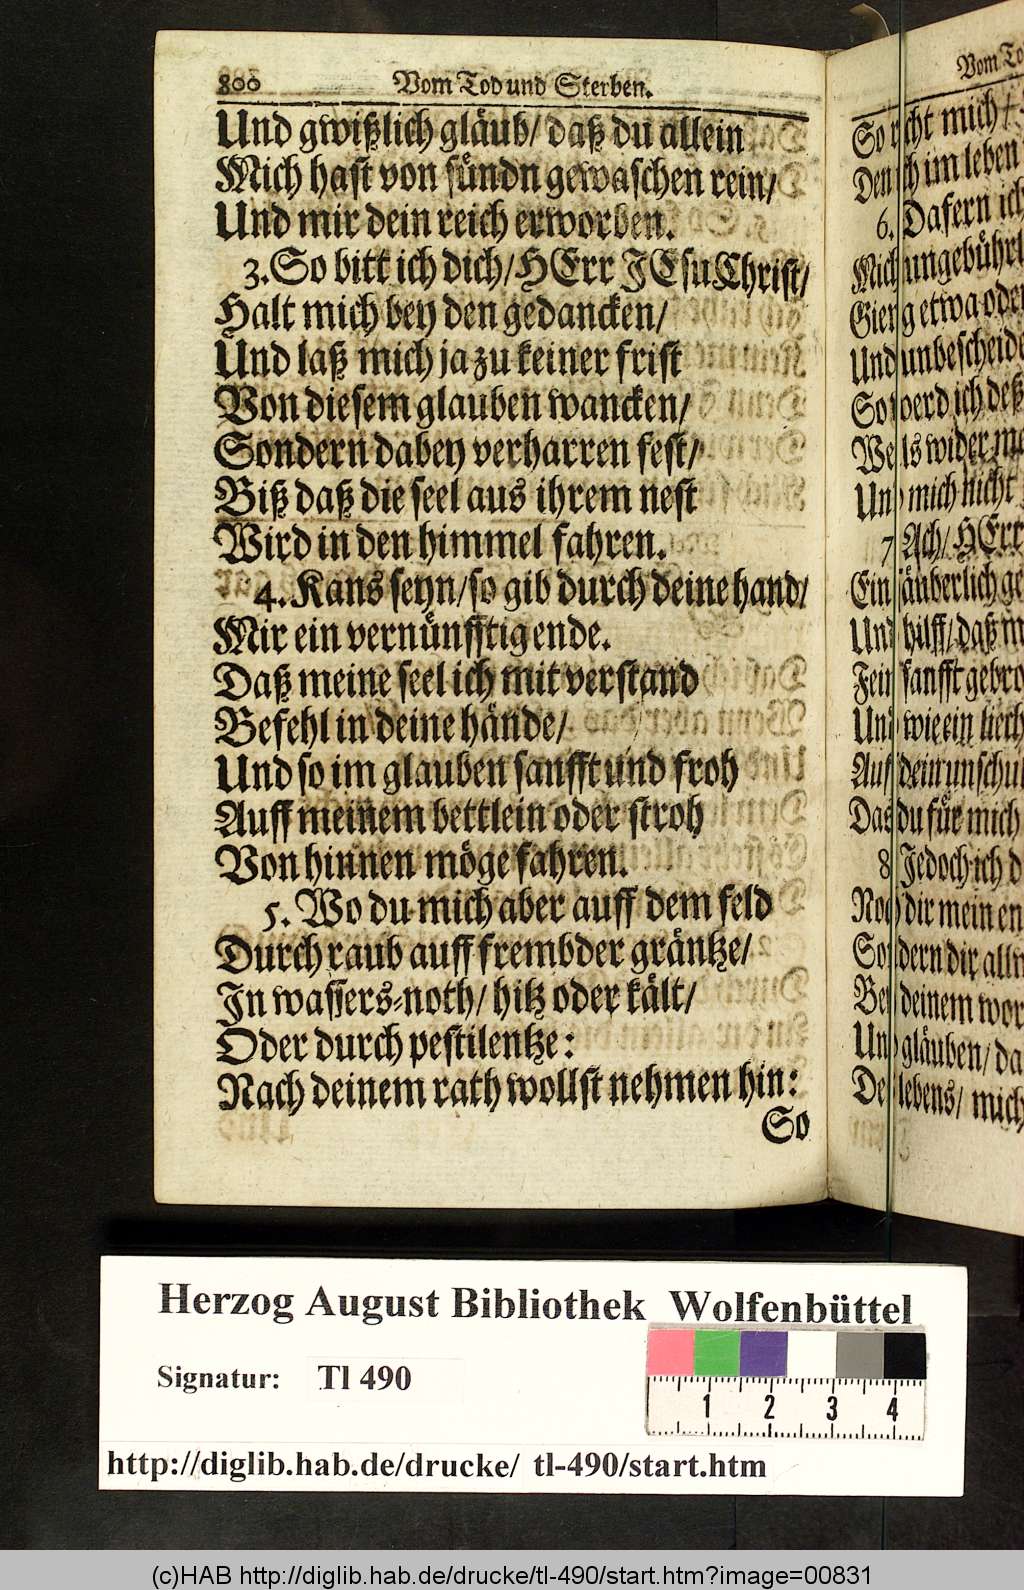 800 Vom Tod und Sterben.
Und gwißlich gläub/ daß du allein
Mich hast von sündn gewaschen rein/
Und mir dein reich erworben.
3. So bitt ich dich/ HErr JEsu Christ/
Halt mich bey den gedancken/
Und laß mich ja zu keiner frist
Von diesem glauben wancken/
Sondern dabey verharren fest/
Biß daß die seel aus ihrem nest
Wird in den himmel fahren.
4. Kans seyn/ so gib durch deine hand/
Mir ein vernünfftig ende.
Daß meine seel ich mit verstand
Befehl in deine hände/
Und so im glauben sanfft und froh
Auff meinem bettlein oder stroh
Von hinnen möge fahren.
5. Wo du mich aber auff dem feld
Durch raub auff frembder gräntze/
In wassers-noth/ hitz oder kält/
Oder durch pestilentze:
Nach deinem rath wollst nehmen hin:
So
Vom To
mich/
im leben
6. Dafern ich
etwa oder
ich deß
wider
mich nicht
7. Ach/ HErr
hilff/ daß
sanfft
wie ein
du für mich
8 Jedoch ich
dir mein en
dir
deinem wor
gläuben/ da
lebens/ mich
Herzog August Bibliothek Wolfenbüttel
Signatur: Tl 490
1 2 3 4
http://diglib.hab.de/drucke/ tl-490/start.htm
(c)HAB http://diglib.hab.de/drucke/tl-490/start.htm?image=00831